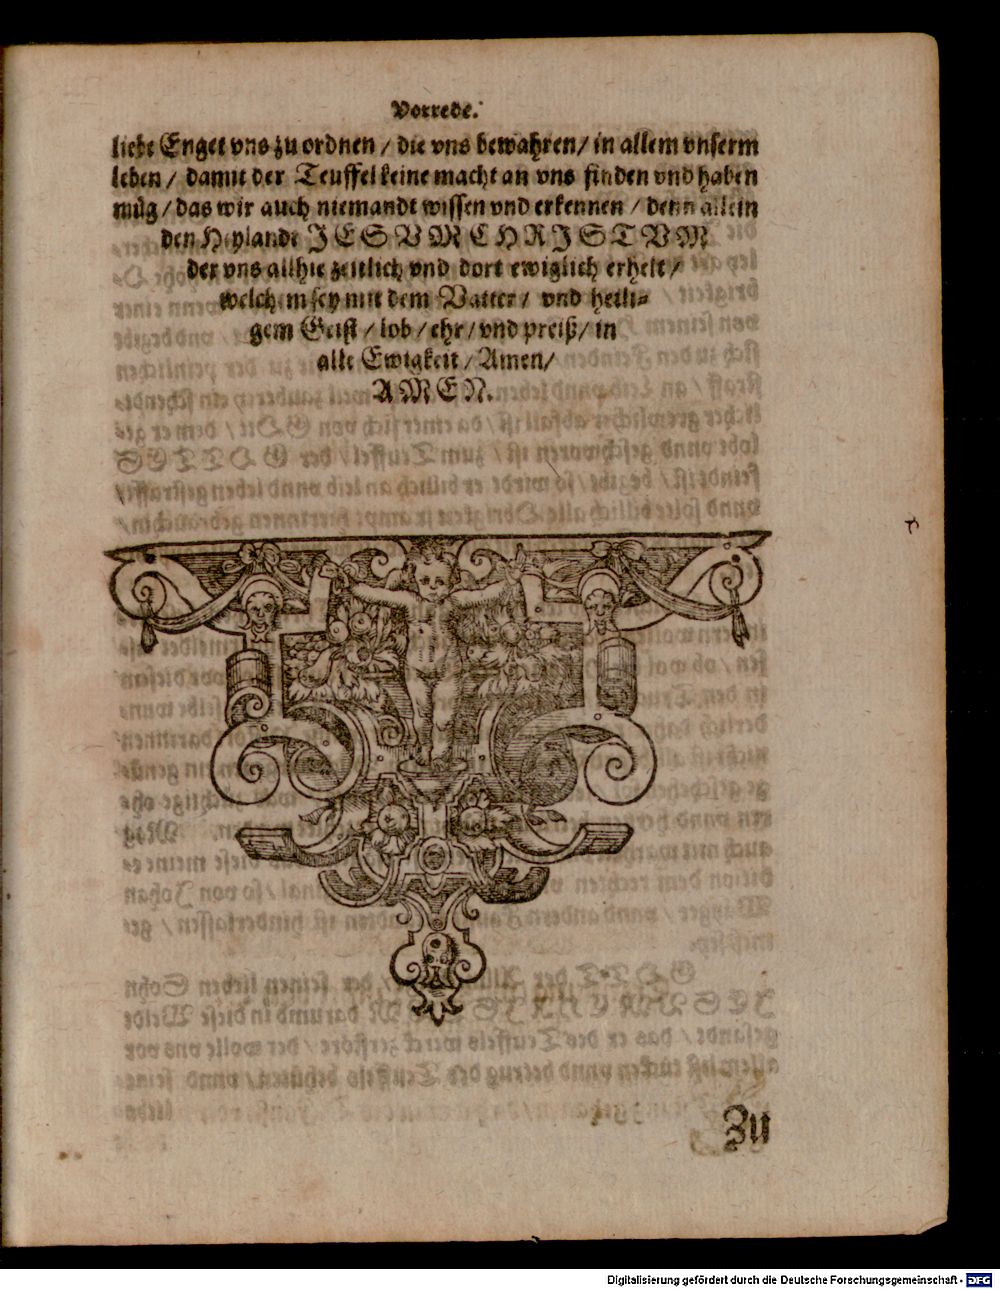 Vorrede.
liebe Engel vns zu ordnen / die vns bewahren / in allem vnserm
leben / damit der Teuffel keine macht an vns finden vnd haben
müg / das wir auch niemandt wissen vnd erkennen / denn allein
den Heylandt JESVM CHRISTVM
der vns allhie zeitlich vnd dort ewiglich erhelt /
welchem sey mit dem Vatter / vnd heili=
gem Geist / lob / ehr / vnd preiß / in
alle Ewigkeit / Amen /
AMEN.
Zu
Digitalisierung gefördert durch die Deutsche Forschungsgemeinschaft - DFG